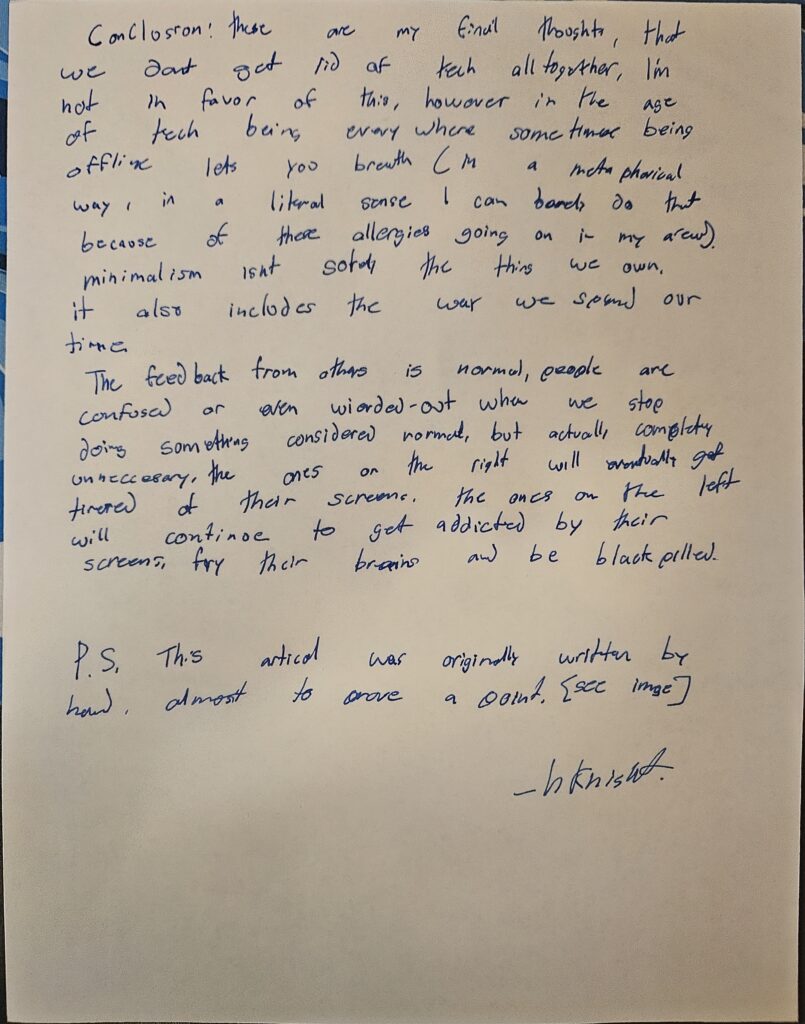 Conclusion: these are my final thoughts, that
we dont get rid of tech all together, I'm
not in favor of this, however in the age
of tech being every where sometimes being
offline lets you breath (in a metaphorical
way, in a literal sense I can barely do that
because of these allergies going on in my area).
minimalism isnt solely the things we own,
it also includes the way we spend our
time.
The feedback from others is normal, people are
confused or even wierded-out when we stop
doing something considered normal, but actually completely
unneccesary, the ones on the right will eventually get
tirered of their screens. the ones on the left
will continue to get addicted by their
screens, fry their brains and be blackpilled.
P.S. This artical was originally written by
hand, almost to prove a point. [see imge]